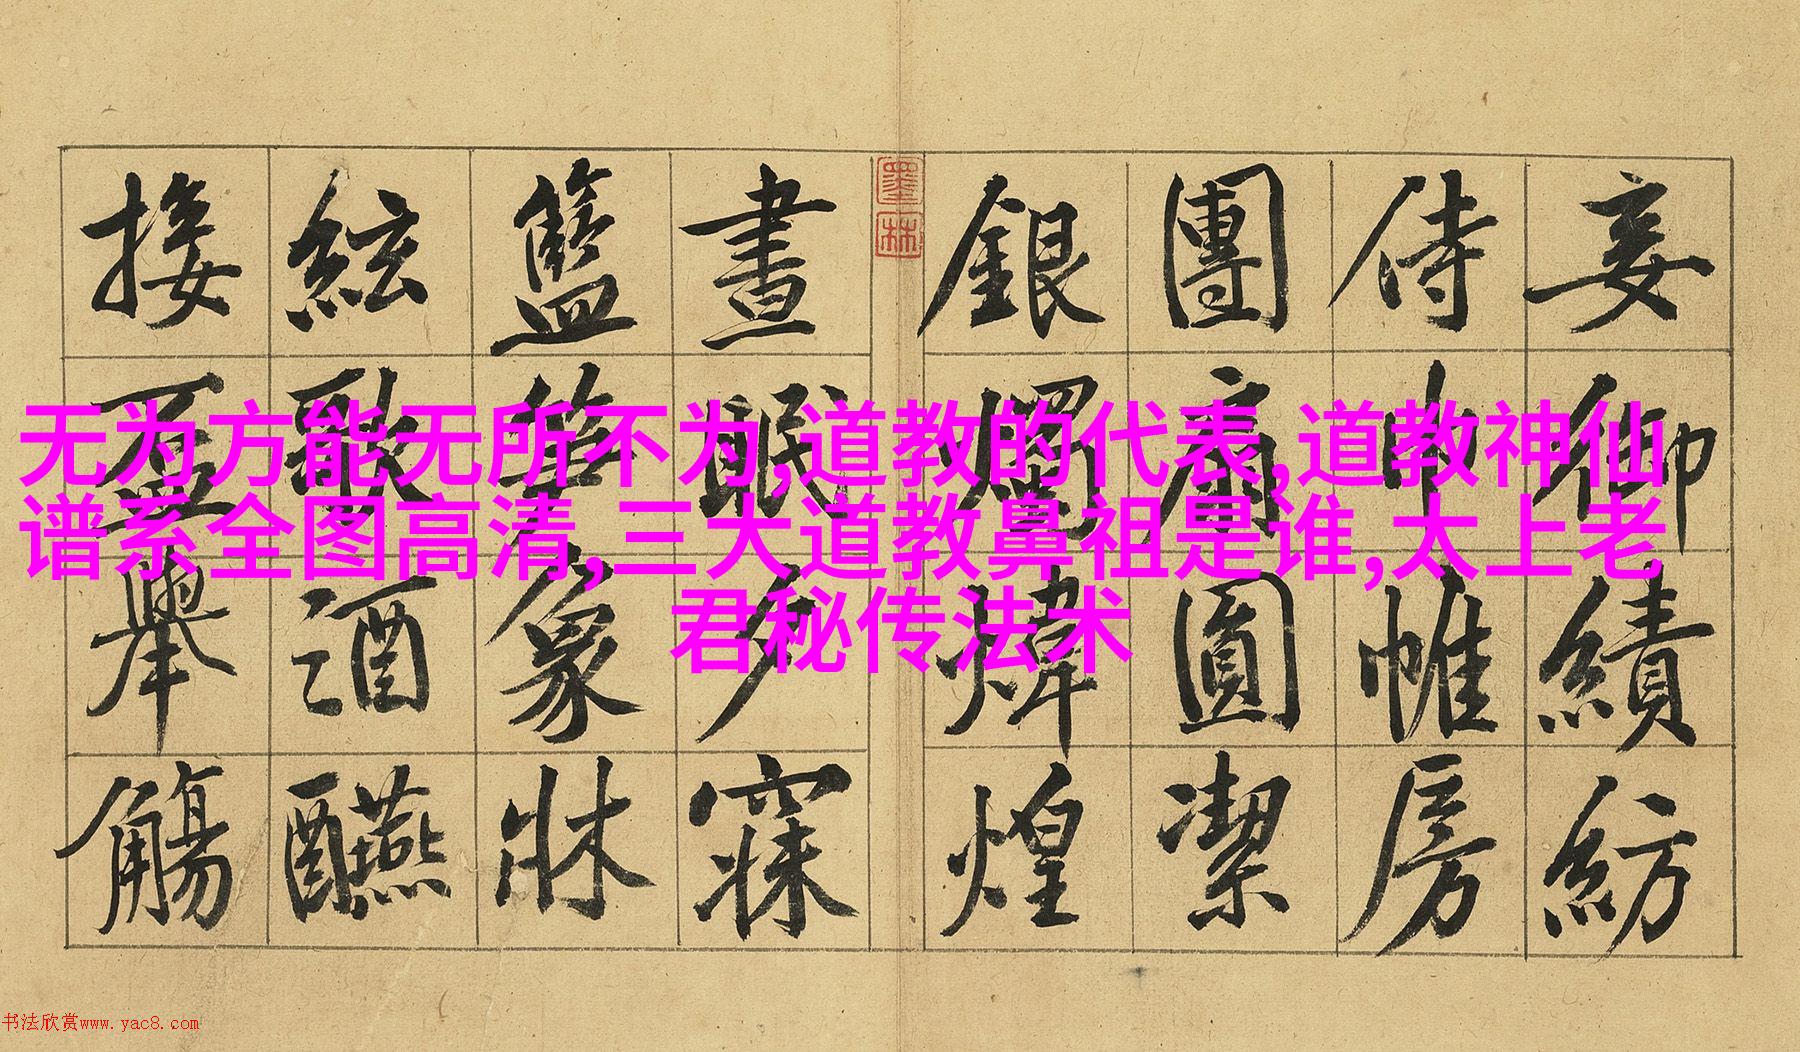 无为方能无所不为,道教的代表,道教神仙
谱系全图高清,三大道教鼻祖是谁,太上老
君秘传法术
妾御績紡
侍巾帷房
團扇圓潔
銀燭煒煌
墨林
晝眠夕寐
籃笋象牀
絃歌酒醼
接盃舉觴
书法欣赏www.yac8.com